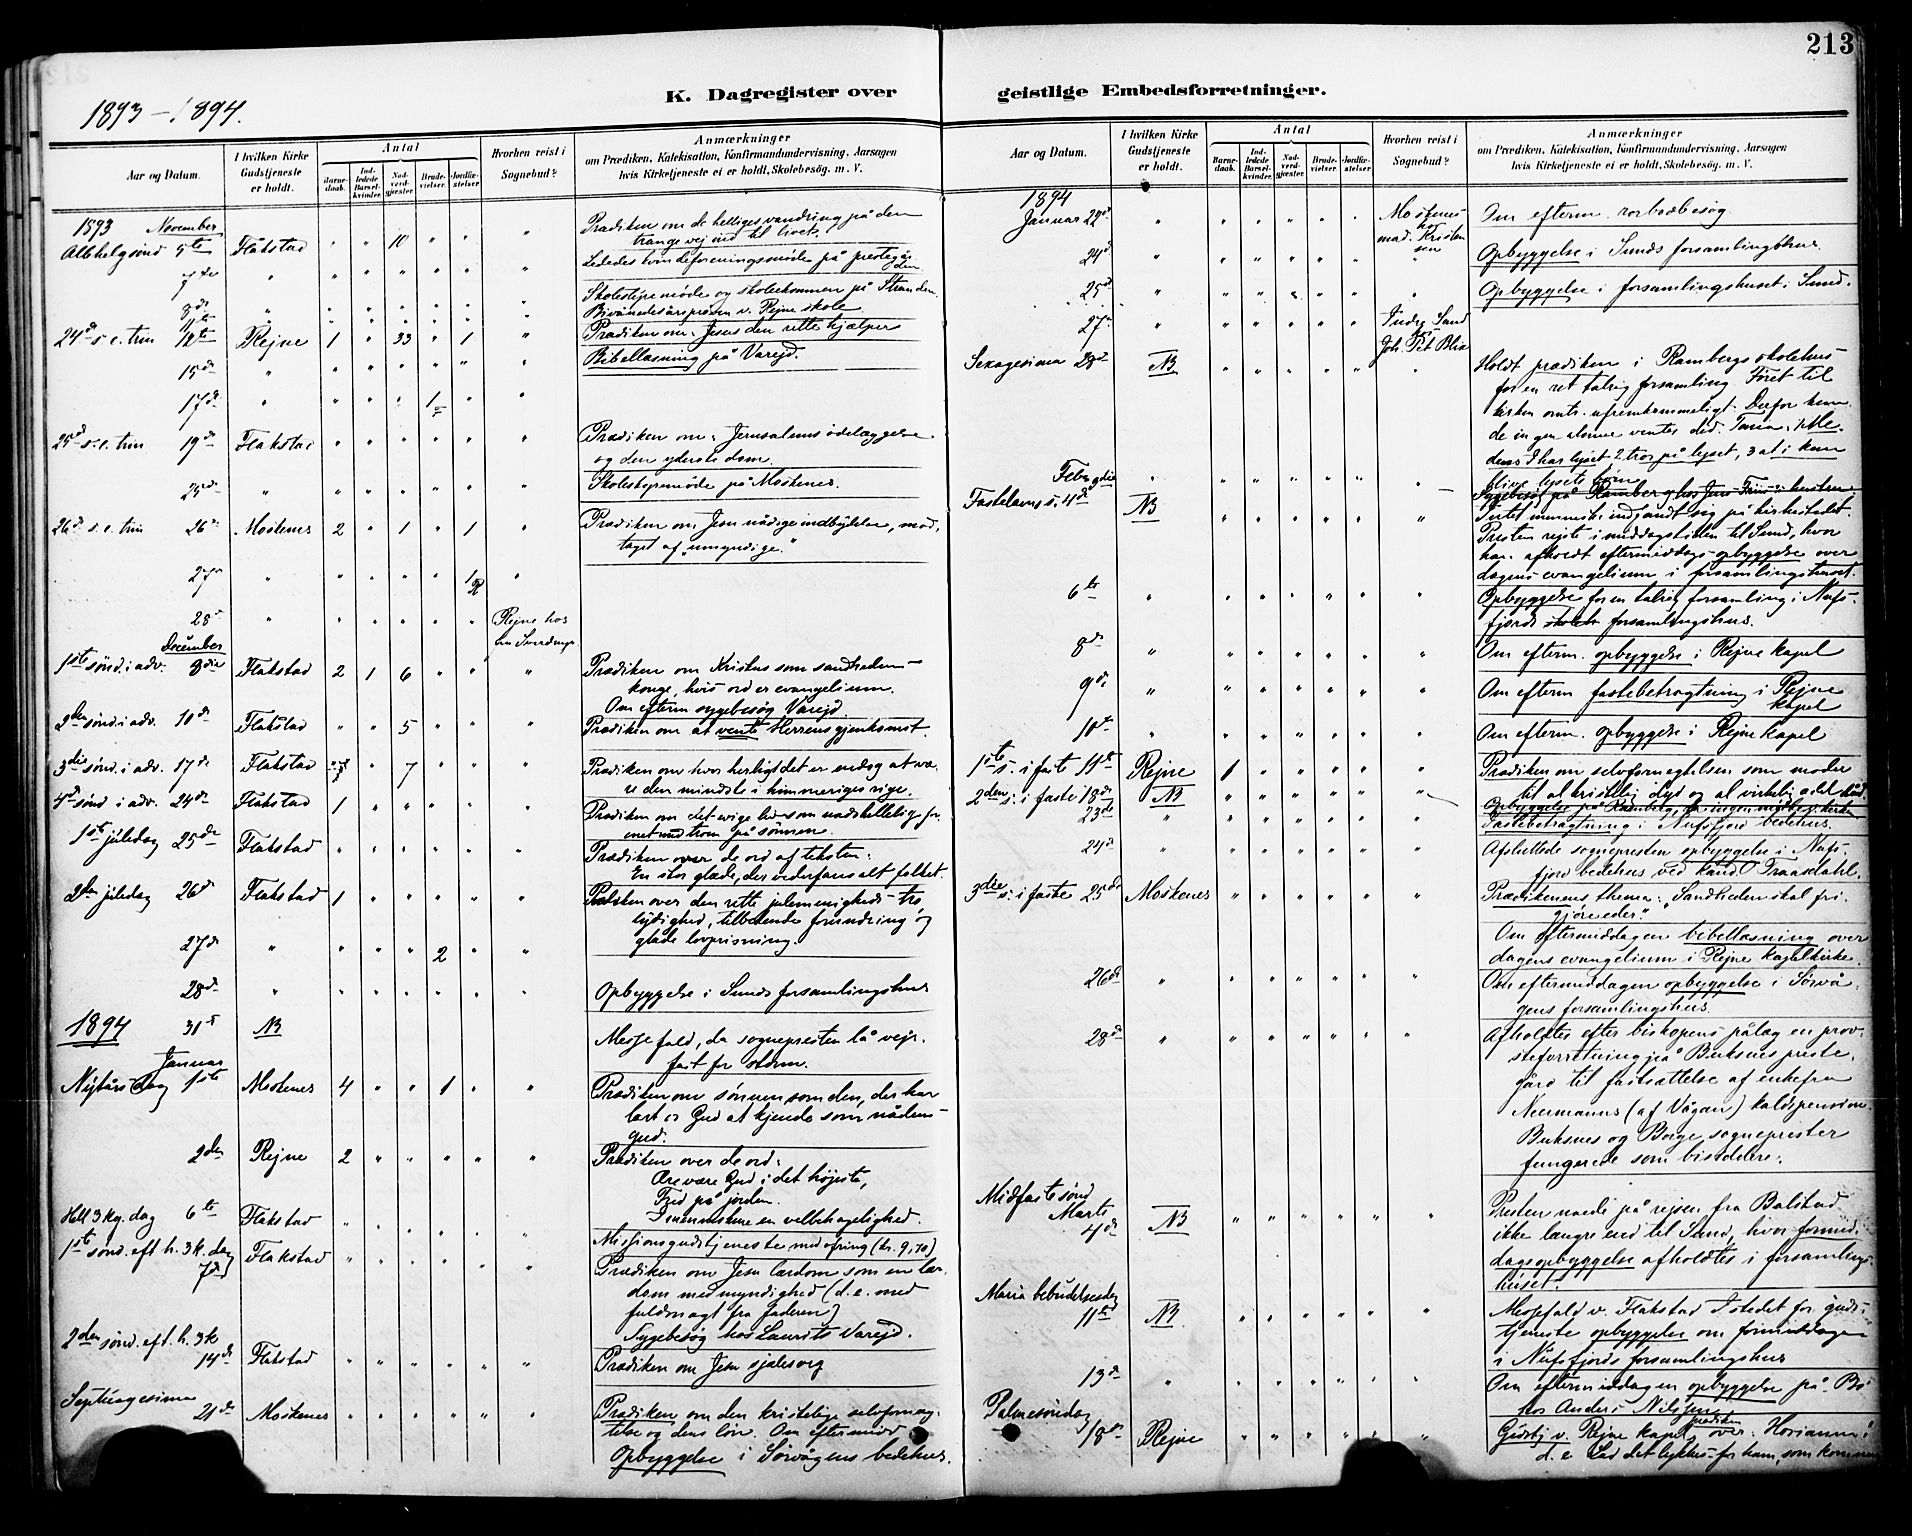 213
1893–1894.
K. Dagregister over geistlige Embedsforretninger.
Aar og Datum.
I hvilken Kirke Gudstjeneste er holdt.
Antal
Barnedaab.
Indledede Barselkvinder.
Nadverdgjæster.
Brudevielser.
Jordfæstelser.
Hvorhen reist i Sognebud?
Anmærkninger
om Prædiken, Katekisation, Konfirmandundervisning, Aarsagen
hvis Kirketjeneste ei er holdt, Skolebesøg. m. V.
1893 November
Allehelgsønd 5te Flakstad " " 10 " " " Prædiken om de helliges vandring på den
trange vej ind til livet.
7de " Lededes kvindeforeningsmøde på prestegården
8de " Skolestyremøde og skolekommun på Stranden
11te " Bivånedes årsprøven v. Rejne skole
24de s. e. trin 12te Rejne 1 " 33 " 1 " Prædiken om: Jesus den rette hjælper
15de " Bibellæsning på Varejd.
17de " " " " 1 " "
25de s. e. trin 19de Flakstad " " " " " " Prædiken om: Jerusalems ødelæggelse
og den yderste dom.
25de " Skolestyremøde på Moskenes.
26de s. e. trin 26de Moskenes 2 " 1 " 1 " Prædiken om Jesu nådige indbydelse, mod-
taget af "umyndige."
27de " " " " " 1 "
28de " Rejne hos
December
1ste sønd. i adv. 3die Flakstad 2 1 6 " " " Prædiken om Kristus som sandhedens
konge, hvis ord er evangelium.
Om efterm sygebesøg Varejd.
2den sønd. i adv. 10de Flakstad " " 5 " " " Prædiken om at vente Herrens gjenkomst.
3die sønd. i adv. 17de Flakstad " 7 " " " Prædiken om hvor herligt det er endog at væ-
re den mindste i himmeriges rige.
4de sønd i adv. 24de Flakstad 1 " " " " " Prædiken om det evige liv som
met ved troen på sønnen.
1ste juledag 25de Flakstad " " " " " " Prædiken over de ord af teksten:
En stor glæde, der vederfares alt folket.
2den juledag 26de Flakstad 1 " " " " " over den rette julemenigheds tro
lydighed, tilbedende forundring og
glade lovprisning.
27de " " " " 2 " "
28de " Opbyggelse i Sunds forsamlingshus
1894 31te NB Messefald, da sognepresten lå vejr-
fast for storm.
Januar
Nytårsdag 1ste Moskenes 4 " " 1 " " Prædiken om sønnen som den, der har
lært os Gud at kjende som nådens
gud.
2den Rejne 2 " " " " " Prædiken over de ord:
Ære være Gud i det højeste,
Fred på jorden.
I menneskene en velbehagelighed.
Hell 3 kg. dag 6te Flakstad Missionsgudstjeneste med ofring (kr. 9,70)
1ste sønd. eft h. 3 k. dag 7de Flakstad Prædiken om Jesu lærdom som en lær-
dom med myndighed (d. e. med
fuldmagt fra faderen)
Sygebesøg hos Laurits Varejd.
2den sønd. eft. h. 3 k 14de Flakstad Prædiken om Jesu sjælesorg
Septuagesima 21de Moskenes Prædiken om den kristelige selvfornæg-
telse og dens løn. Om eftermidd
Opbyggelse i Sørvågens bedehus.
Aar og Datum.
I hvilken Kirke Gudstjeneste er holdt.
Antal
Barnedaab.
Indledede Barselkvinder.
Nadverdgjæster.
Brudevielser.
Jordfæstelser.
Hvorhen reist i Sognebud?
Anmærkninger
om Prædiken, Katekisation, Konfirmandundervisning, Aarsagen
hvis Kirketjeneste ei er holdt, Skolebesøg. m. V.
1894
Januar 22de " Moskenes hos mad. Kristensen Om efterm. rorbodbesøg.
24de " Opbyggelse i Sunds forsamlingshus.
25de " Opbyggelse i forsamlingshuset i Sund.
27de " Indre Sund hos Joh. Pet
Sexagesima 28de NB Holdt prædiken i Rambergs skolehus
for en ret talrig forsamling Føret til
kirken omtr. ufremkommeligt. Derfor kun-
de ingen almue ventes did. Tema: 1 Me-
dens I har lyset 2 tror på lyset, 3 at i kan
blive lysets børn.
Februar 2den Sygebesøg på Ramberg hos
Fastelavns s. 4de NB Intet menneske indfandt sig på kirkestedet.
Presten rejste i middagstiden til Sund, hvor
han afholdt eftermiddags-opbyggelse over
dagens evangelium i forsamlingshuset.
6te " Opbyggelse for en talrig forsamling i Nufs-
fjords forsamlingshus.
8de " Om efterm. opbyggelse i Rejne kapel
9de " Om efterm fastebetragtning i Rejne
kapel
10de " Om efterm. opbyggelse i Rejne kapel
1ste s. i faste 11te Rejne 1 Prædiken om selvfornegtelsen som moder
til al kristelig dyd og al virkelig ædel dåd.
2den s. i faste 18de NB Opbyggelse på Ramberg, da ingen kirken
23de " Fastebetragtning i Nufsfjord bedehus.
24de " Afsluttede sognepresten opbyggelse i Nufs-
fjord bedehus ved Kand. Traasdahl.
3die s. i faste 25de Moskenes Prædikenens thema: "Sandheden skal fri-
gjøre eder."
Om eftermiddagen bibellæsning over
dagens evangelium i Rejne kapelkirke.
26de " Om eftermiddagen opbyggelse i Sørvå-
gens forsamlingshus.
28de " Afholdtes efter biskopens pålæg en prov-
steforretning på Buksnes preste-
gård til fastsættelse af enkefru
Neermanns (af Vågan) kaldspension.
Buksnes og Borge sogneprester
fungerede som bisiddere.
Midfaste sønd
Marts 4de NB Presten naade på rejsen fra Balstad
ikke længre end til Sund, hvor formid-
dagsopbyggelse afholdtes i forsamlings-
huset.
Maria bebudelsesdag 11te NB. Messefald v. Flakstad Istedet for guds-
tjeneste opbyggelse om formiddagen
i Nufsfjords forsamlingshus
13de " Om eftermiddagen opbyggelse på Bø
hos Anders Nilssen
Palmesøndag 18de Rejne Gudstj v. Rejne kapel prædiken over: Hosianna:
d. e Lad det lykkes for ham, som kommer